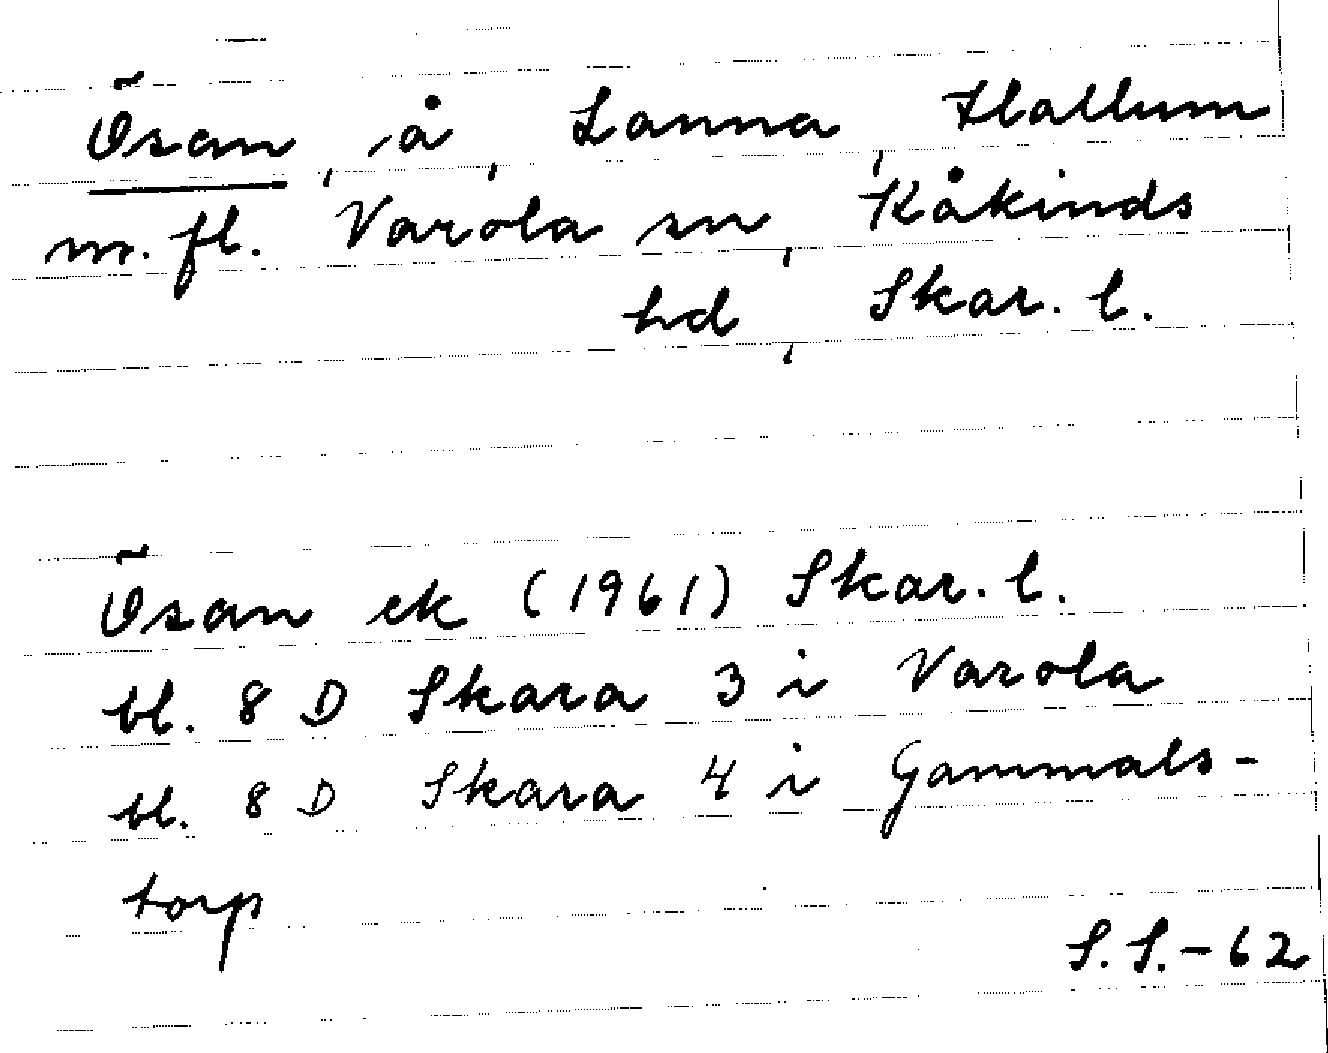 Ösan, å, Lanna, Hallum
m. fl. Varola sn, Kåkinds
hd, Skar. l.
Ösan ek (1961) Skar. l.
bl. 8 D Skara 3 i Varola
bl. 8 D Skara 4 i Gammals-
torp
S.S.-62